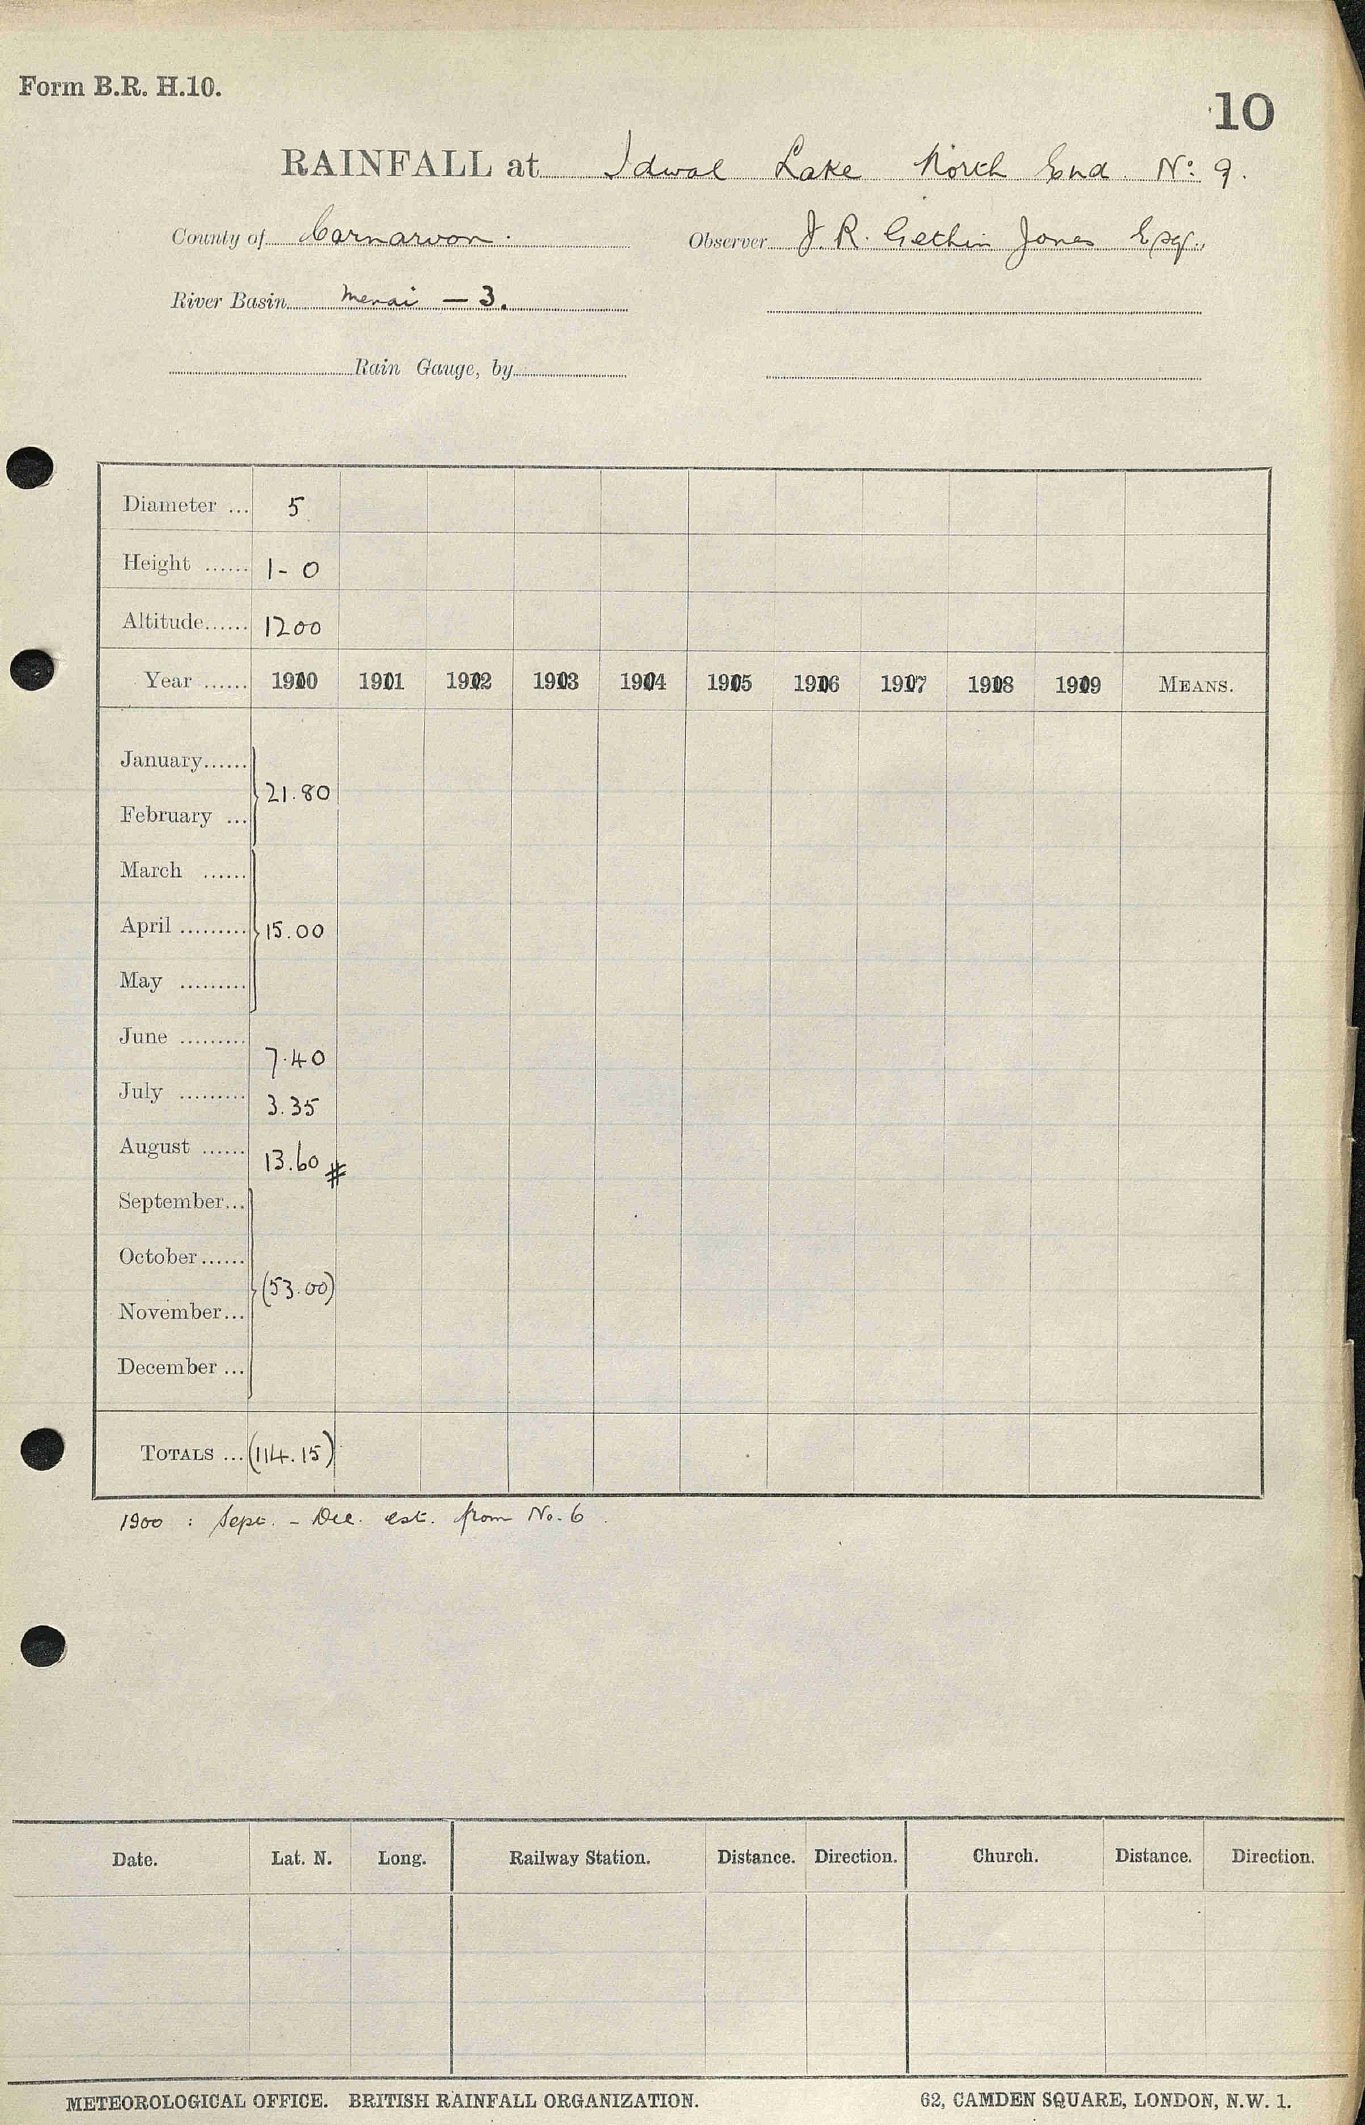 Form B.R. H.10.
10
RAINFALL at Idwal Lake North End No: 9.
County of Carnarvon. Observer J. R. Gethin Jones Esqr.,
River Basin Menai - 3.
Rain Gauge, by
Diameter ... 5
Height ...... 1-0
Altitude...... 1200
Year ...... 1900 1901 1902 1903 1904 1905 1906 1907 1908 1909 MEANS.
January......
21.80
February ...
March ......
April ......... 15.00
May .........
June ......... 7.40
July ......... 3.35
August ...... 13.60 #
September...
October......
(53.00)
November...
December ...
TOTALS ... (114.15)
1900 : Sept. - Dec. est. from No. 6.
Date. Lat. N. Long. Railway Station. Distance. Direction. Church. Distance. Direction.
METEOROLOGICAL OFFICE. BRITISH RAINFALL ORGANIZATION. 62, CAMDEN SQUARE, LONDON, N.W. 1.